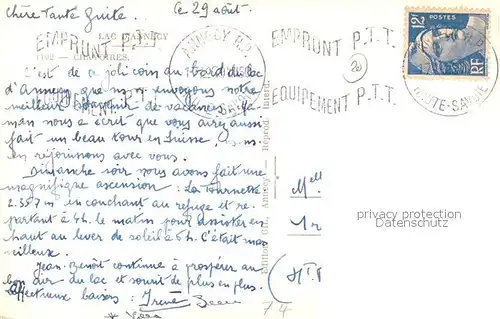 Chère Tante Guite. Ce 29 août.
LAC D'ANNECY
1192 - CHAVOIRES.
EMPRUNT P.T.T.
ANNECY R.P.
EMPRUNT P.T.T.
ÉQUIPEMENT P.T.T.
HAUTE-SAVOIE
12F POSTES
RF
C'est de ce joli coin au bord du lac
d'Annecy que nous envoyons notre
meilleur souvenir de vacances. Ma-
man nous a écrit que vous aviez aussi
fait un beau tour en Suisse, nous nous
en réjouissons avec vous.
Dimanche soir nous avons fait une
magnifique ascension : La Tournette
2.357 m en couchant au refuge et re-
partant à 4h. le matin pour assister en
haut au lever de soleil à 6h. C'était mer
veilleux.
Jean-Benoît continue à prospérer au
bon air du lac et sourit de plus en plus.
Affectueux baisers : Irène Jean
74
Mell
privacy protection
Datenschutz